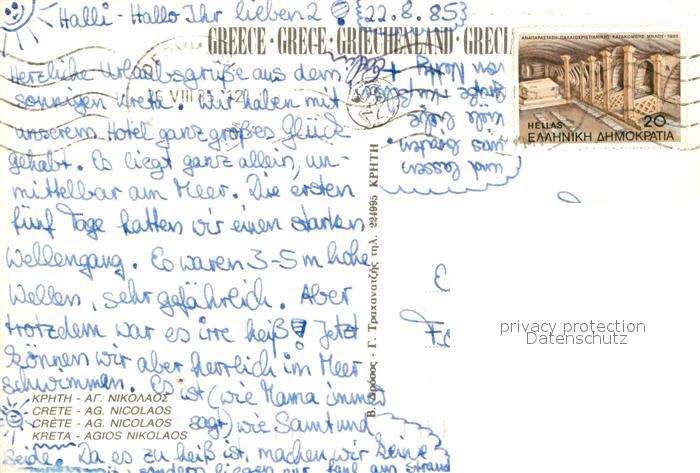 Halli - Hallo Ihr lieben 2 ! {22.8.85}
GREECE · GRECE · GRIECHENLAND · GRECI
Herzliche Urlaubsgrüße aus dem
sonnigen Kreta. Wir haben mit
unserem Hotel ganz großes Glück
gehabt. Es liegt ganz allein, un-
mittelbar am Meer. Die ersten
fünf Tage hatten wir einen starken
Wellengang. Es waren 3-5m hohe
Wellen, sehr gefährlich. Aber
trotzdem war es irre heiß! Jetzt
können wir aber herrlich im Meer
schwimmen. Es ist (wie Mama immer
sagt) wie Samt und
Seide. Da es zu heiß ist, machen wir keine
sondern liegen nur faul am Strand
und lassen
uns braten.
Viele liebe
Grüße
von
ΚΡΗΤΗ - ΑΓ. ΝΙΚΟΛΑΟΣ
CRETE - AG. NICOLAOS
CRÈTE - AG. NICOLAOS
KRETA - AGIOS NIKOLAOS
Β. Δρόσος - Γ. Τραχανατζής τηλ. 224995 ΚΡΗΤΗ
26 VIII 85 12
ΑΝΑΠΑΡΑΣΤΑΣΗ ΠΑΛΑΙΟΧΡΙΣΤΙΑΝΙΚΗΣ ΚΑΤΑΚΟΜΒΗΣ ΜΗΛΟΥ - 1985
HELLAS 20
ΕΛΛΗΝΙΚΗ ΔΗΜΟΚΡΑΤΙΑ
privacy protection
Datenschutz